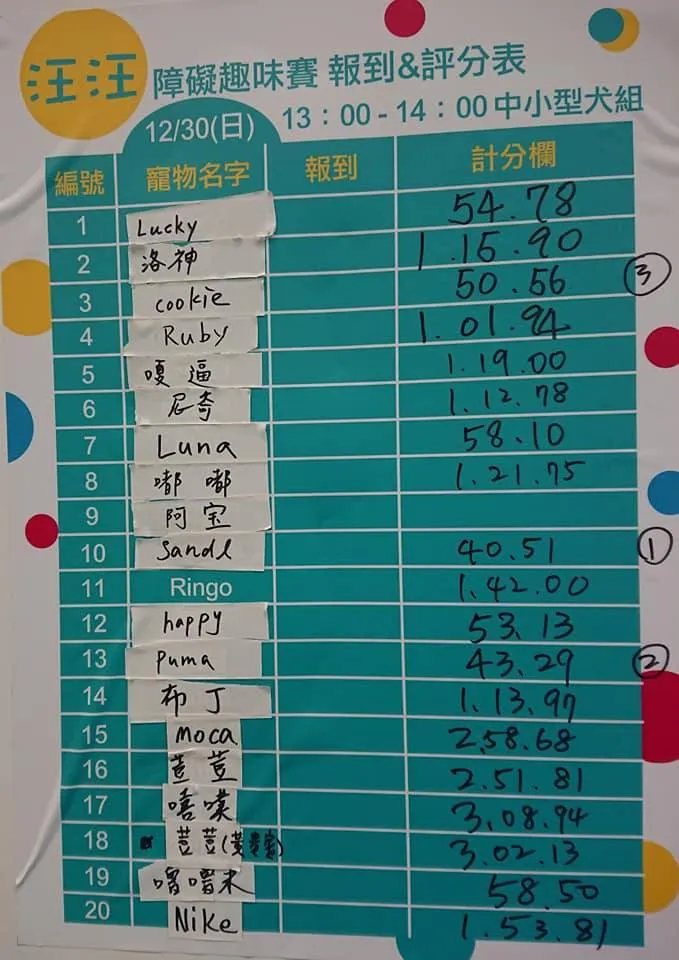 汪汪 障礙趣味賽 報到&評分表
12/30(日) 13：00-14：00 中小型犬組
編號 寵物名字 報到 計分欄
1 Lucky 54.78
2 洛神 1.15.90
3 cookie 50.56 ③
4 Ruby 1.01.94
5 嘎逼 1.19.00
6 尼奇 1.12.78
7 Luna 58.10
8 嘟嘟 1.21.75
9 阿宝
10 Sande 40.51 ①
11 Ringo 1.42.00
12 happy 53.13
13 puma 43.29 ②
14 布丁 1.13.97
15 moca 2.58.68
16 荳荳 2.51.81
17 嘻噗 3.08.94
18 荳荳 3.02.13
19 嚕嚕米 58.50
20 Nike 1.53.81